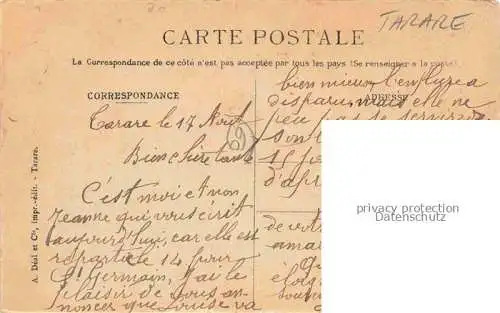 TARARE
CARTE POSTALE
La Correspondance de ce côté n'est pas acceptée par tous les pays (Se renseigner à la poste)
CORRESPONDANCE
ADRESSE
A. Déal et Cie, impr.-édit. - Tarare.
69
Tarare le 17 Août
Bien chère tante
C'est moi et non
Jeanne qui vous écrit
aujourd'hui, car elle est
repartie le 14 pour
St Germain, j'ai le
plaisir de vous an-
noncer que Louise va
bien mieux l'enflure a
disparu, mais elle ne
peu pas se servir
son
15 jo
d'apr
de vot
ama
privacy protection
Datenschutz